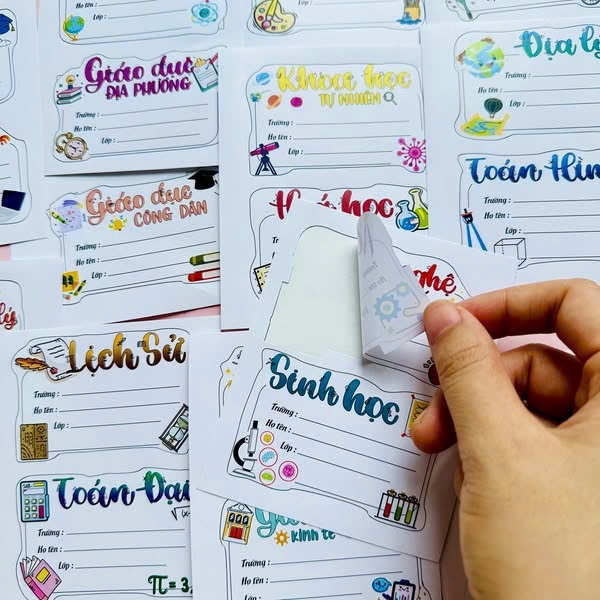 Họ tên :
Lớp :
Giáo dục
ĐỊA PHƯƠNG
Trường :
Họ tên :
Lớp :
Khoa học
TỰ NHIÊN
Trường :
Họ tên :
Lớp :
Địa lý
Trường :
Họ tên :
Lớp :
Giáo dục
CÔNG DÂN
Trường :
Họ tên :
Lớp :
học
Toán Hìn
Trường :
Họ tên :
Lớp :
nghệ
Lịch Sử
Trường :
Họ tên :
Lớp :
Sinh học
Trường :
Họ tên :
Lớp :
Toán Đại
Trường :
Họ tên :
Lớp :
π = 3,
kinh tế
Trường :
Họ tên :
Lớp :